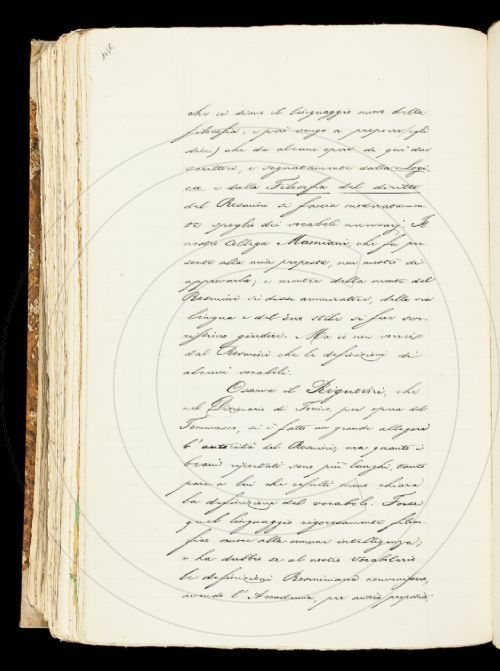 che ci diano il linguaggio nuovo della
filosofia, e però vengo a proporre (egli
dice) che da alcune opere di que' due
scrittori, e segnatamente dalla Logi-
ca e dalla Filosofia del diritto
del Rosmini si faccia moderatamen
te spoglio dei vocaboli necessarj. Il
nostro Collega Mamiani, che fu pre
sente alla mia proposta, non mostrò di
approvarla; e mentre della mente del
Rosmini si disse ammiratore, della sua
lingua e del suo stile si fece seve-
rissimo giudice. Ma io non vorrei
dal Rosmini che le definizioni di
alcuni vocaboli.
Osserva il Rigutini, che
nel Dizionario di Torino, per opera del
Tommaseo, si è fatto un grande allegare
l'autorità del Rosmini, ma quanto i
brani riportati sono più lunghi, tanto
pare a lui che resulti meno chiara
la definizione del vocabolo. Forse
quel linguaggio rigorosamente filoso-
fico nuoce alla comune intelligenza;
e ha dubbio se al nostro Vocabolario
le definizioni Rosminiane convengano,
avendo l'Accademia, per antico proposito